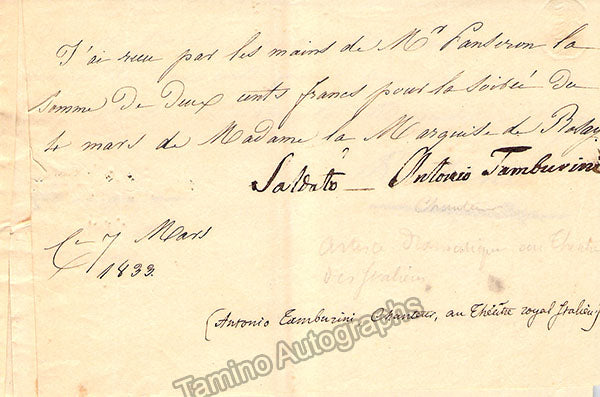 J'ai recu par les mains de Mr Panseron la
somme de deux cents francs pour la soirée du
mars de Madame la Marquise de
Saldato — Antonio Tamburini
Chanteur
Ce 7 Mars
1833.
Artiste Dramatique au Théatre
Des Italiens
(Antonio Tamburini Chanteur, au Théâtre royal Italien)
Tamino Autographs